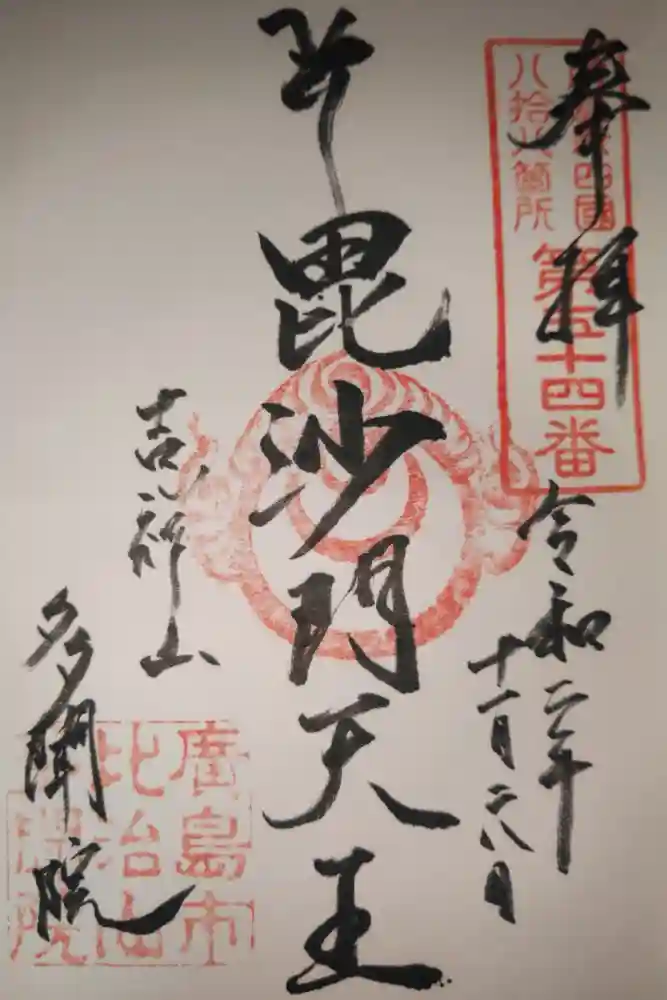 奉拝
四國
八拾八箇所
第五十四番
令和二年
十一月二八日
毘沙門天王
吉祥山
多聞院
廣島市
比治山
院